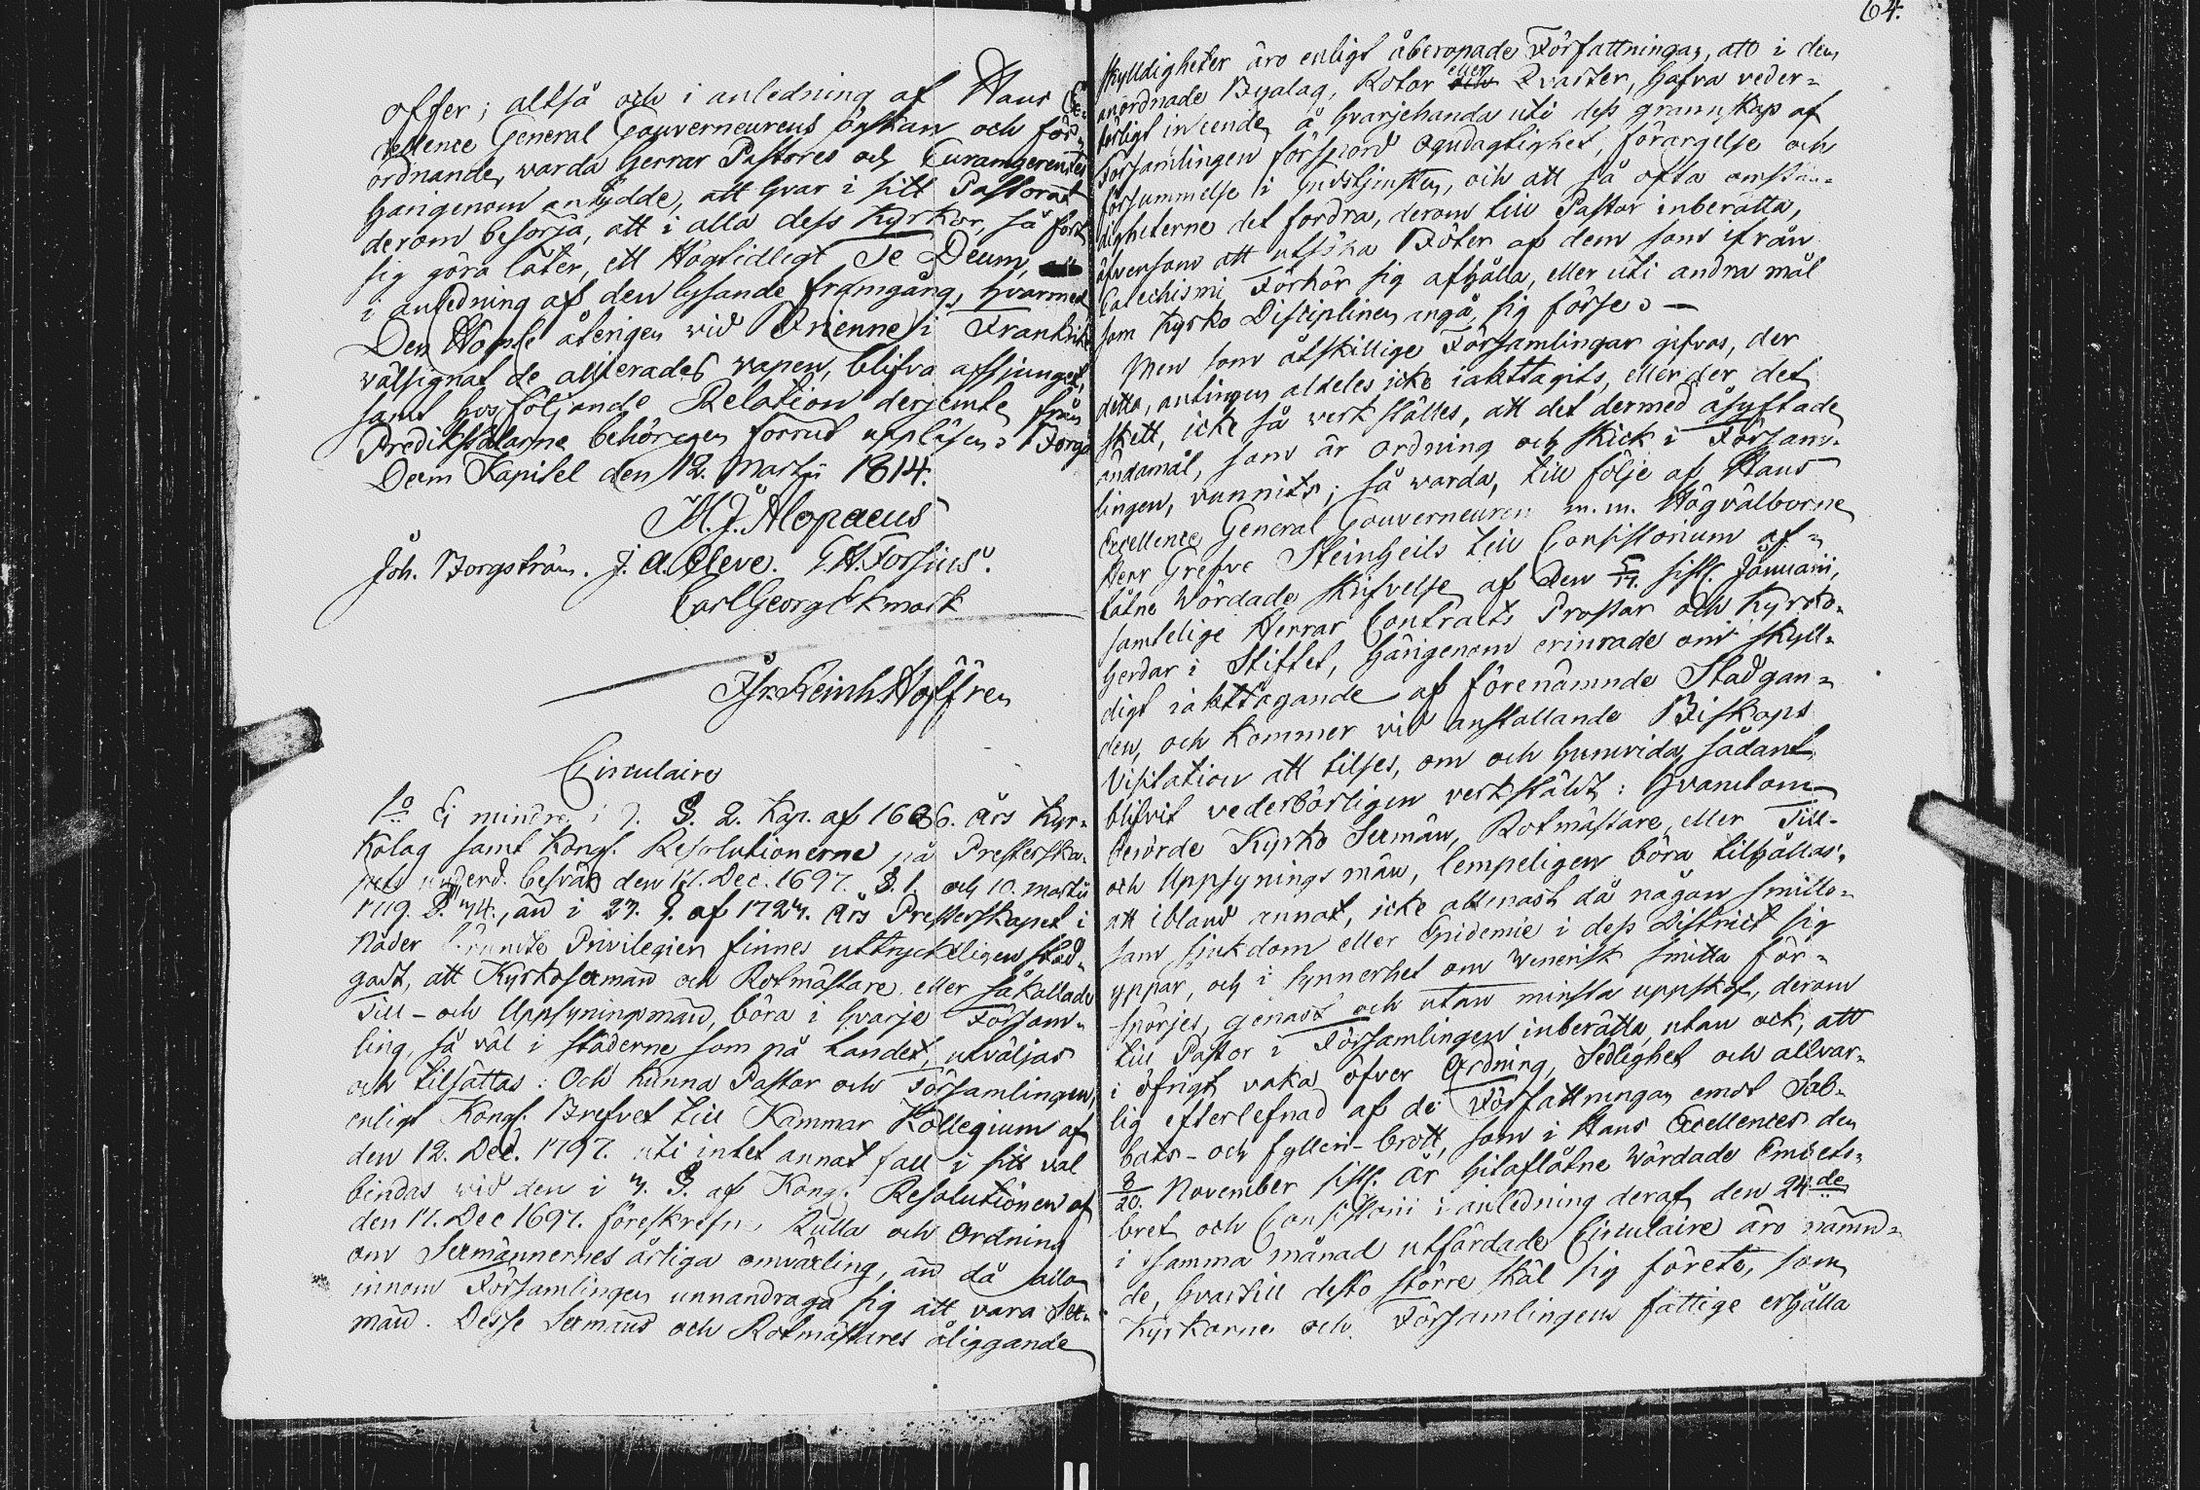 offer; altså och i anledning af Hans Ex-
cellence General Gouverneurens önskan och för-
ordnande, warda Herrar Pastores och Curamgerentes
härigenom anlydde, att hvar i sitt Pastorat
derom besörja, att i alla dess Kyrkor, så fort
sig göra låter, ett Högtidligt Te Deum,
i anledning af den lysande framgång, hvarmed
Den Högste återigen wid Brienne i Frankrike
wälsignat de allierades wapen, blifva afsjunget,
samt hosföljande Relation derjemte från
Predikstolarne behörigen förrut uppläsen. Borgo
Dom Kapitel den 12. Martii 1814.
M. J. Alopaeus
Joh. Borgström. J. A. Cleve. G. H. Forsius.
Carl Georg Ekmark
Reinh. Hoffren
Circulaire
1o Ej mindre i §. 2. Kap. af 1686. års Kyr-
kolag samt Kongl. Resolutionerne på Presterska-
pets underd. besvär den 17. Dec. 1697. §. 1. och 10. Martii
1719. §. 74., än i 23. §. af 1723. års Presterskapet i
Nåder förunnte Privilegier finnes uttryckeligen stad-
gadt, att Kyrkosexmän och Rotmästare eller så kallade
Till- och Uppsyningsmän, böra i hvarje Försam-
ling, så väl i städerne som på Landet, utväljas
och tilsättas: Och kunna Pastor och Församlingen,
enligt Kongl. Brefvet till Kammar Kollegium af
den 12. Dec. 1797. uti intet annat fall i sitt val
bindas wid den i 3. §. af Kongl. Resolutionen af
den 17. Dec 1697. föreskrefne Rulla och Ordning
om Sexmännernes årliga omväxling, än då alla
innom Församlingen unnandraga sig att vara Sex-
män. Desse Sexmäns och Rotmästares åliggande
64.
skylldigheter äro enligt åberopade Författningar, att i den
anordnade Byalag, Rotor eller Qvarter, hafva veder-
börligt inseende å hvarjehanda uti dess grannskap af
Församlingen förspord ogudagtighet, förargelse och
försummelse i Gudstjensten, och att så ofta omstän-
digheterne det fordra, derom till Pastor inberätta,
äfvensom att utsöka Böter af dem som ifrån
Catechismi Förhör sig afhålla, eller uti andra mål
som Kyrko Disciplinen angå, sig förse. —
Men som åtskillige Församlingar gifvas, der
detta, antingen aldeles icke iakttagits, eller der det
skett, icke så verkställtes, att det dermed åsyftade
ändamål, som är ordning och skick i Försam-
lingen, vunnits; så warda, till följe af Hans
Excellence General Gouverneuren m. m. Högvälborne
Herr Grefve Steinheils till Consistorium af-
låtne Wördade skrifvelse af den 5/17. sistl. Januarii,
samtelige Herrar Contracts Prostar och Kyrko-
herdar i Stiftet, härigenom erinrade om skyll-
digt iakttagande af förenämnde Stadgan-
den, och kommer vid anstallande Biskops
Visitation att tilses, om och huruvida sådant
blifvit vederbörligen verkställdt: Hvarutom
berörde Kyrko Sexmän, Rotmästare, eller Till-
och Uppsynings män, lempeligen böra tilhållas,
att ibland annat, icke allenast då någon smitto-
sam sjukdom eller Epidemie i dess District sig
yppar, och i synnerhet om Wenerisk smitta för-
spörjes, genast och utan minsta uppskof, derom
till Pastor i Församlingen inberätta, utan ock, att
i öfrigt vaka öfver Ordning, Sedlighet och allvar-
lig efterlefnad af de Författningar emot Sab-
bats- och fylleri-brott, som i Hans Excellences den
8/20. November sistl. år hitaflåtne Wördade Embets-
bref och Consistorii i anledning deraf den 24de
i samma månad utfärdade Circulaire äro nämn-
de, hvartill desto större skäl sig förete, som
Kyrkorne och Församlingens fattige erhålla